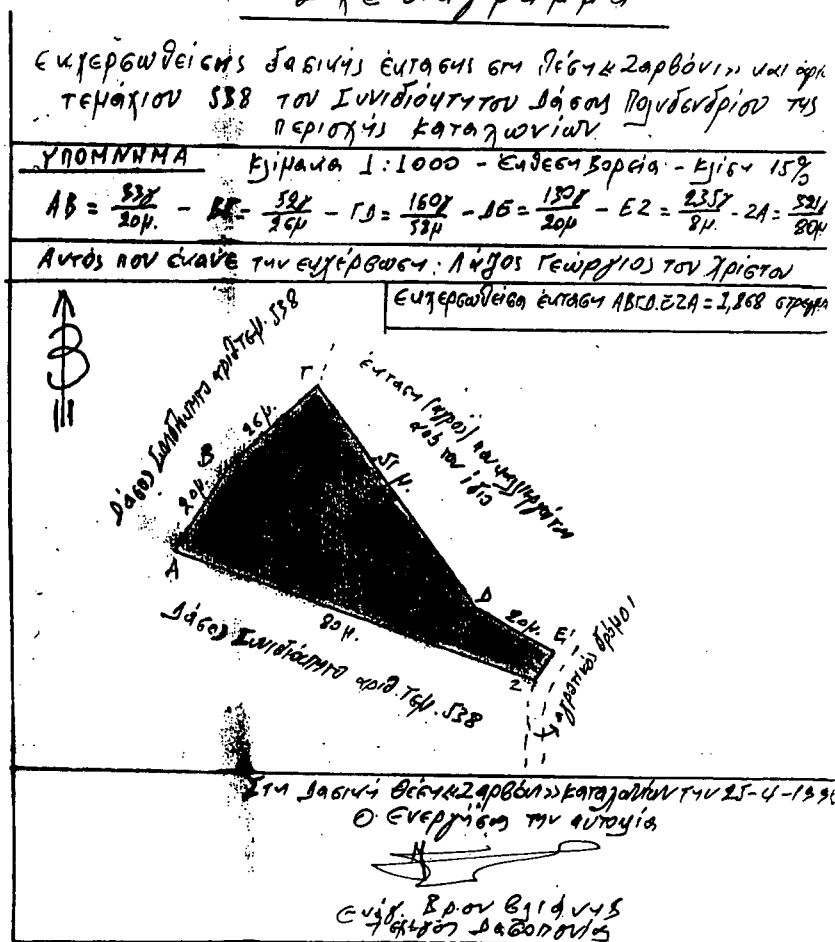 εκχερσωθείσης δασικής έκτασης στη θέση «Ζαρβόνι» και αριθ
τεμάχιου 538 του Συνιδιόκτητου Δάσους Πολυδενδρίου της
περιοχής Καταλωνίων
ΥΠΟΜΝΗΜΑ Κλίμακα 1:1000 - Έκθεση Βορεία - Κλίση 15%
ΑΒ = 33γ/20μ. - ΒΓ = 52γ/26μ - ΓΔ = 160γ/52μ - ΔΕ = 130γ/20μ - ΕΖ = 235γ/8μ. - ΖΑ = 321γ/80μ
Αυτός που έκανε την εκχέρσωση: Λάλος Γεώργιος του Χρίστου
Εκχερσωθείσα έκταση ΑΒΓΔΕΖΑ = 1,868 στρεμμα
Β
Δάσος Συνιδιόκτητο αριθ τεμ. 538
έκταση (αγρός) που καλλιεργείται
από τον ίδιο
Γ
26μ.
Β
20μ.
51μ.
Α
Δ
20μ.
Ε
80μ.
Ζ
Δάσος Συνιδιόκτητο αριθ. τεμ. 538
αγροτικός δρόμος
Στη Δασική θέση «Ζαρβόνι» Καταλωνίων την 25-4-199
Ο Ενεργήσας την αυτοψία
Δασοπονίας